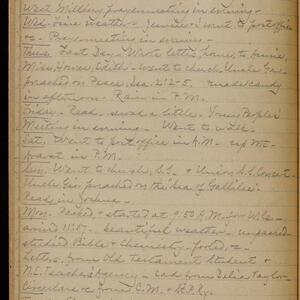 West Millbury, prayermeeting in evening.
Wed. Fine weather - Jennie & I went to post office
& - Prayermeeting in evening -
Thurs. Fast Day - Wrote letters, home, to Annie,
Miss Howes, Edith - Went to church, Uncle Geo.
preached on Peace, Isa. 2:2-5. made candy
in afternoon - Rain in P.M.
Friday. Read, sewed a little - Young Peoples
Meeting in evening - Went to walk -
Sat. Went to Post office in A.M. up Mt.
in P.M.
Sun. Went to church, S.S. + Union S.S. Concert
Uncle Geo. preached on the Sea of Gallilee
Read in Joshua -
Mon. Packed + started at 9:50 A.M. for
arrived 11:57 - beautiful weather - unpacked
studied Bible + Chemistry -
Letters, from Old Testament Student +
N.E. Teachers Agency - Card from Delia Taylor -
Circulars from C.M. + R.P.